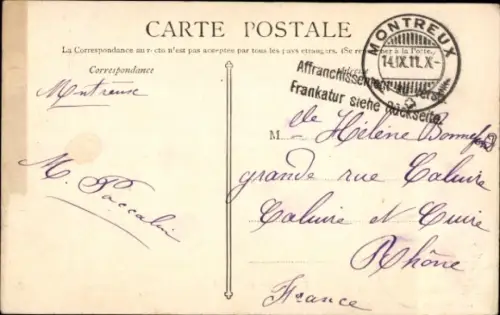 CARTE POSTALE
La Correspondance au recto n'est pas acceptée par tous les pays étrangers. (Se renseigner à la Poste.)
Correspondance
MONTREUX
14.IX.11.X-
Affranchissement au verso.
Frankatur siehe Rückseite.
Montreux
M. Paccalin
M lle Hélène Bonnefond
grande rue Caluire
Caluire et Cuire
Rhône
France